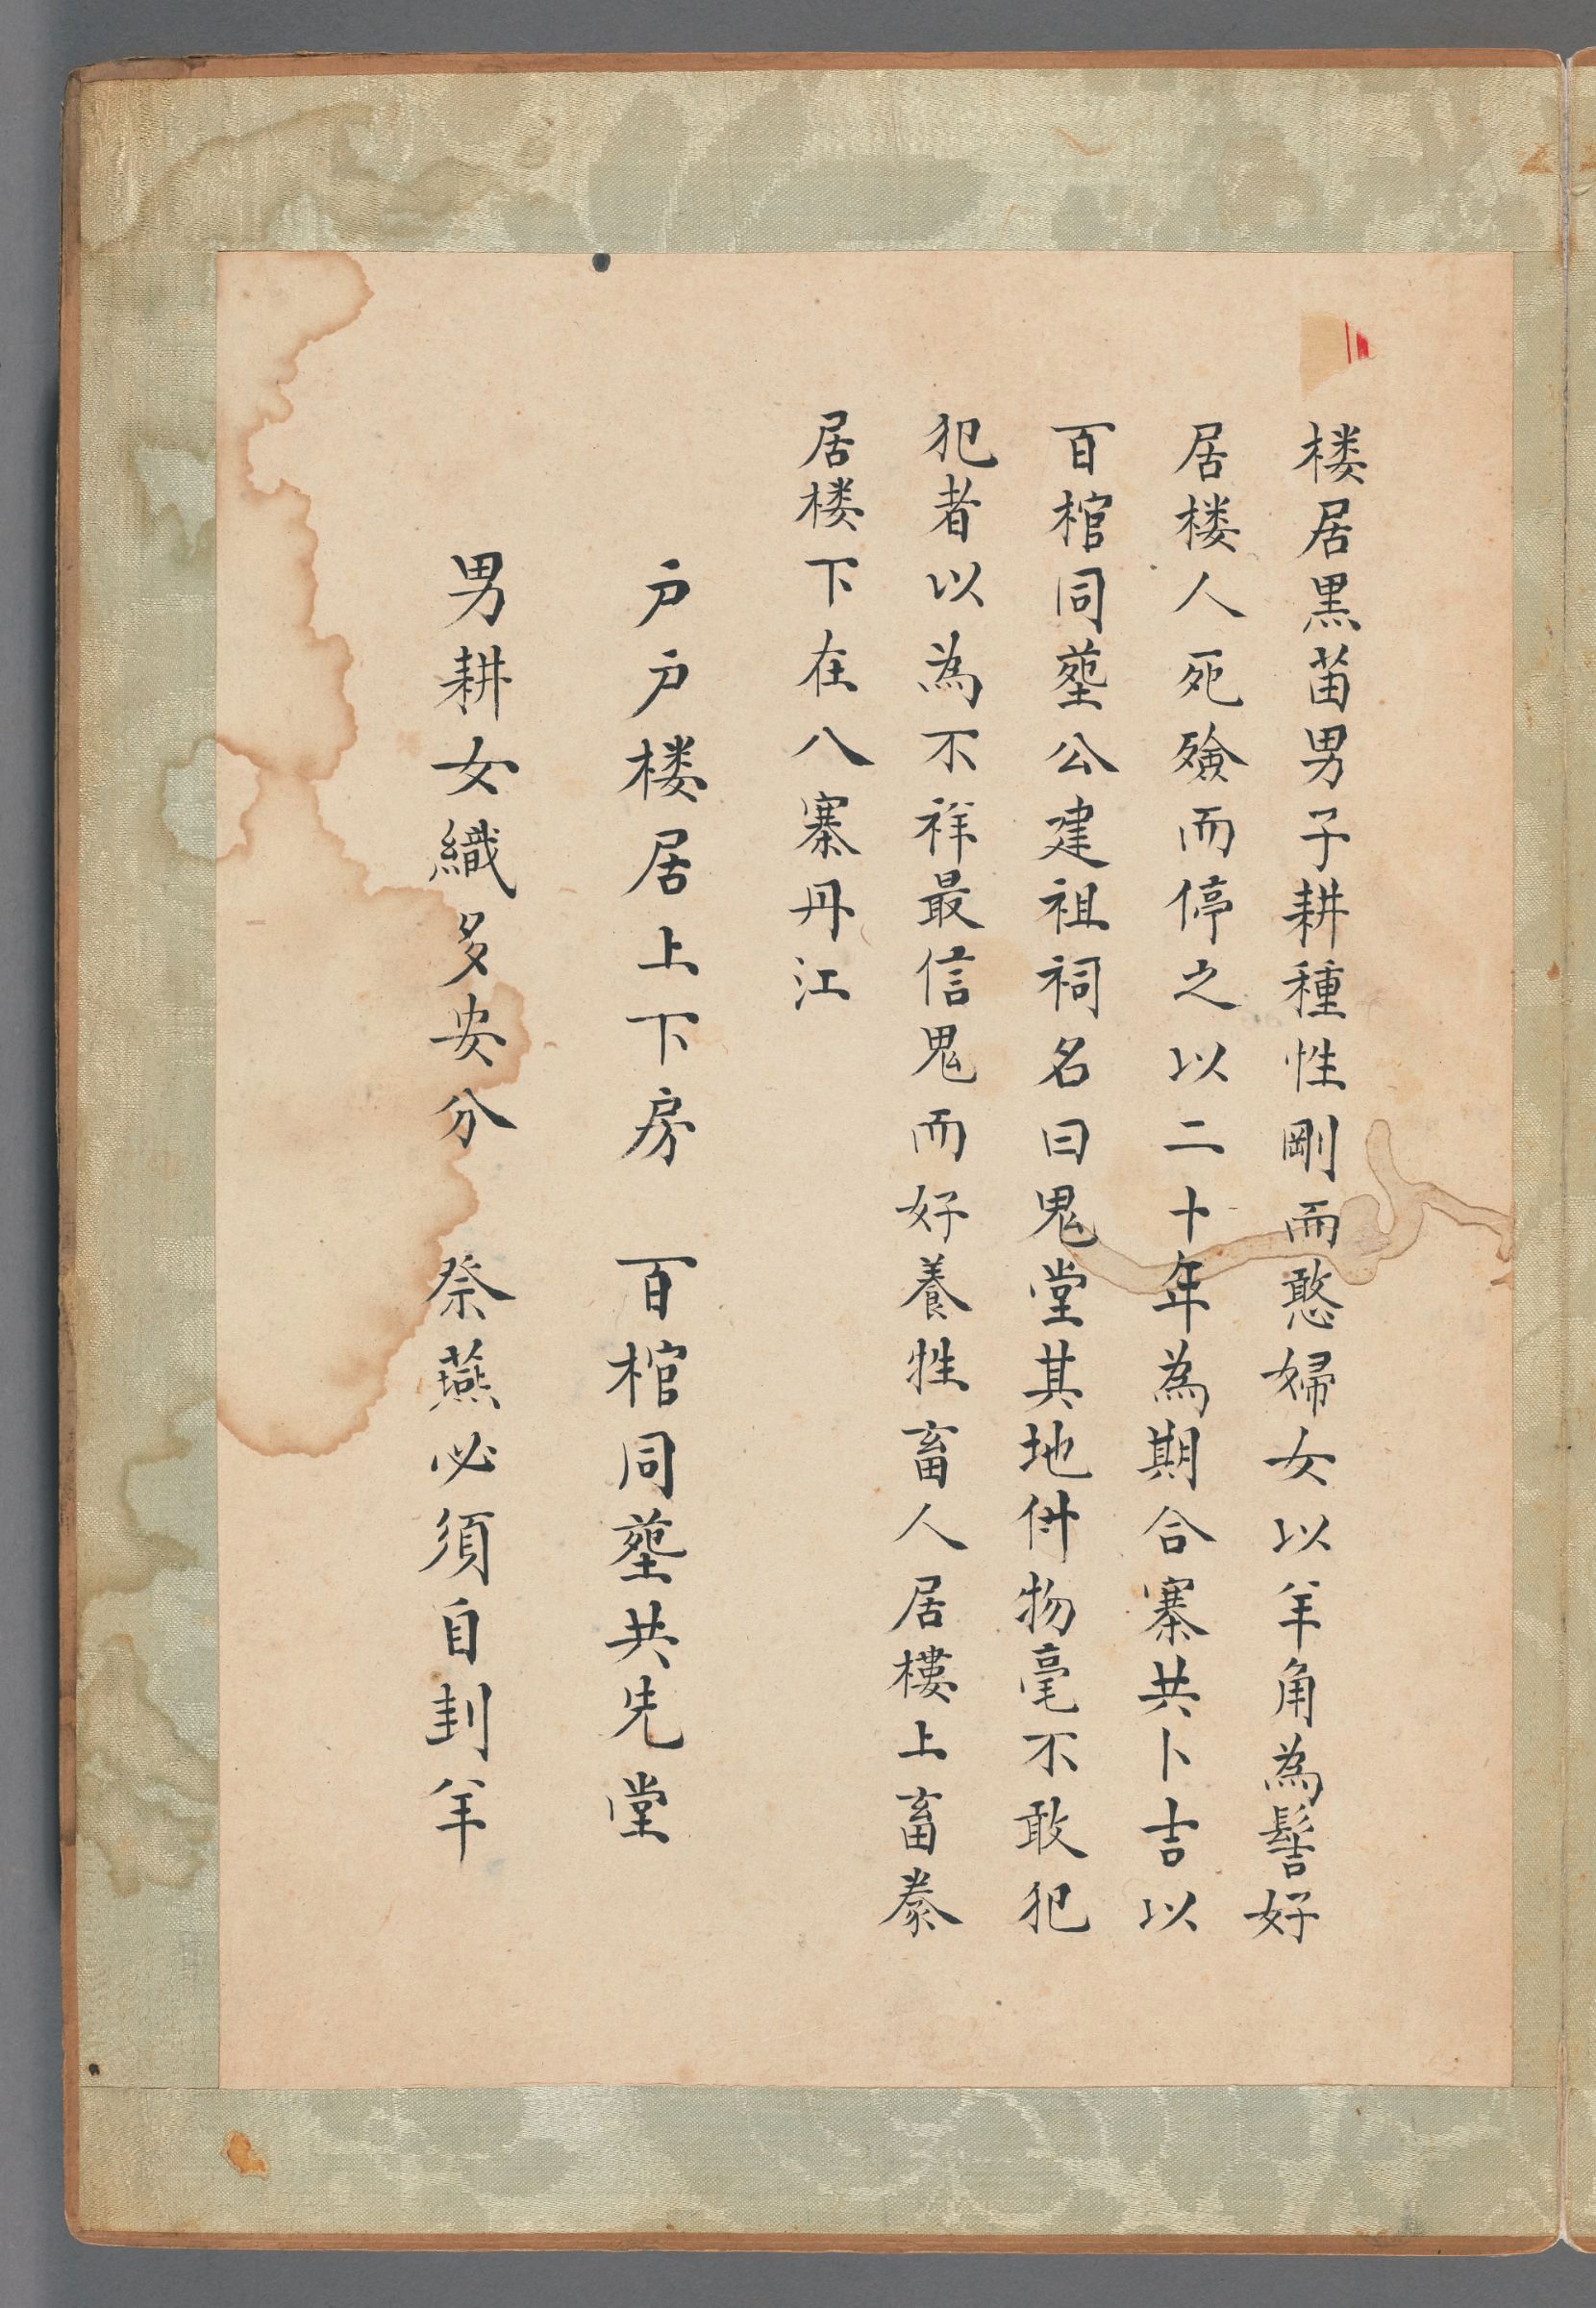 楼居黒苗男子耕種性剛而憨婦女以羊角為髻好
居楼人死殮而停之以二十年為期合寨共卜吉以
百棺同塟公建祖祠名曰鬼堂其地件物毫不敢犯
犯者以為不祥最信鬼而好養牲畜人居樓上畜豢
居楼下在八寨丹江
戶戶楼居上下房　百棺同塟共先堂
男耕女織多安分　祭燕必須自刲羊